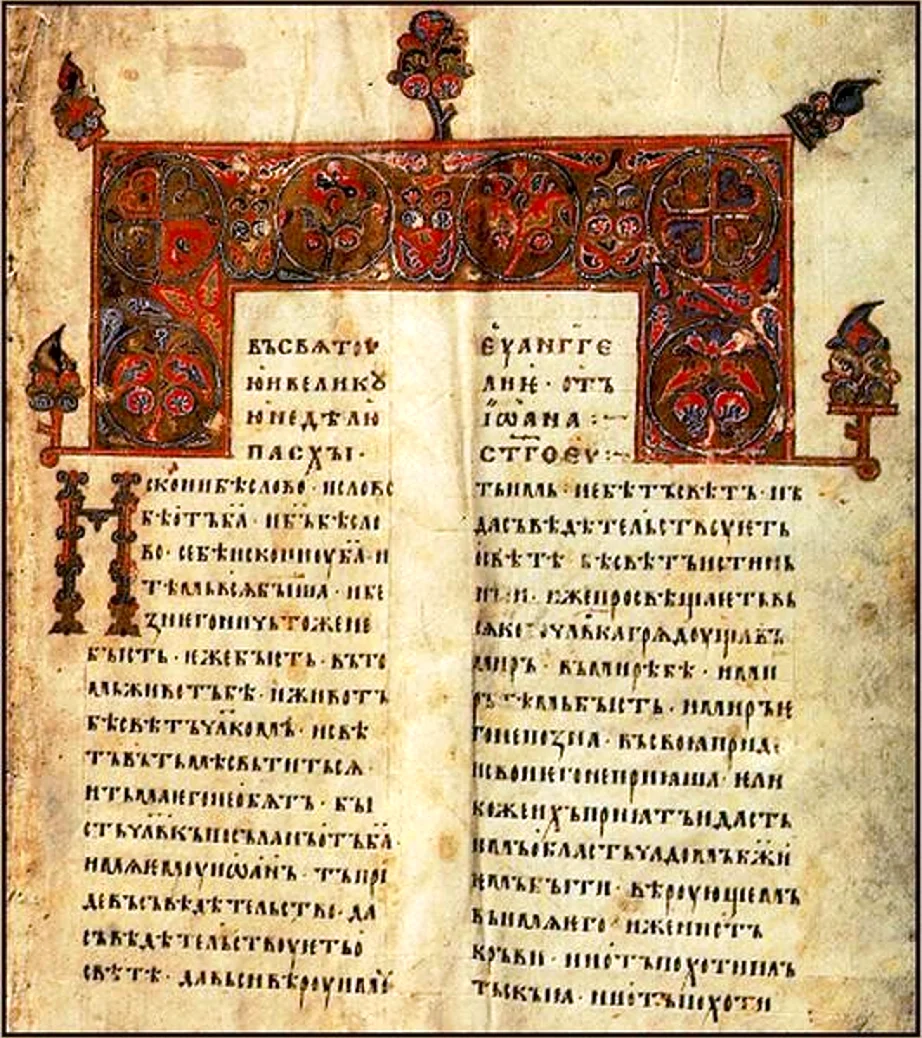 въсвѧтоу
юнвеликꙋ
юнедѣлю
пасхꙑ·
Искони бѣслово · ислово
бѣотъб҃а · иб҃ъбѣсло
во · себѣисконноуб҃а · и
тѣмьвсѧбꙑша · ибе
знегоничьтожене
бꙑсть · ежебꙑсть · вьто
мьживотъбѣ · иживотъ
бѣсвѣтъчл҃комъ · исвѣ
тъвътьмѣсвьтитьсѧ ·
итьмаегонеобѧтъ · бꙑ
стьчл҃вкъпосъланъотъб҃а ·
имѧемоуиѡанъ · тъпри
девъсъвѣдѣтельство · да
съвѣдѣтельствоуетьо
свѣтѣ · давьсивѣроуимоу
еуангге
лие · отъ
іѡана :~
стгоеу:~
тъимь · небѣтъсвѣтъ · нъ
дасъвѣдѣтельствоуеть
освѣтѣ бѣсвѣтъистинь
нꙑи · ижепросвѣщаетьвь
сѧкогочл҃вкагрѧдоущавъ
миръ · вьмирѣбѣ · ими
рътѣмьбꙑсть · имиръѥ
гонепозна · въсвоꙗприде
исвоиегонеприꙗша · ели
кожеихъприꙗтъидасть
имъобластьчадомъбж҃и
емъбꙑти · вѣроующемъ
вьимѧего · иженеотъ
кръви · ниотъпохотипль
тьскꙑꙗ · ниотъпохоти